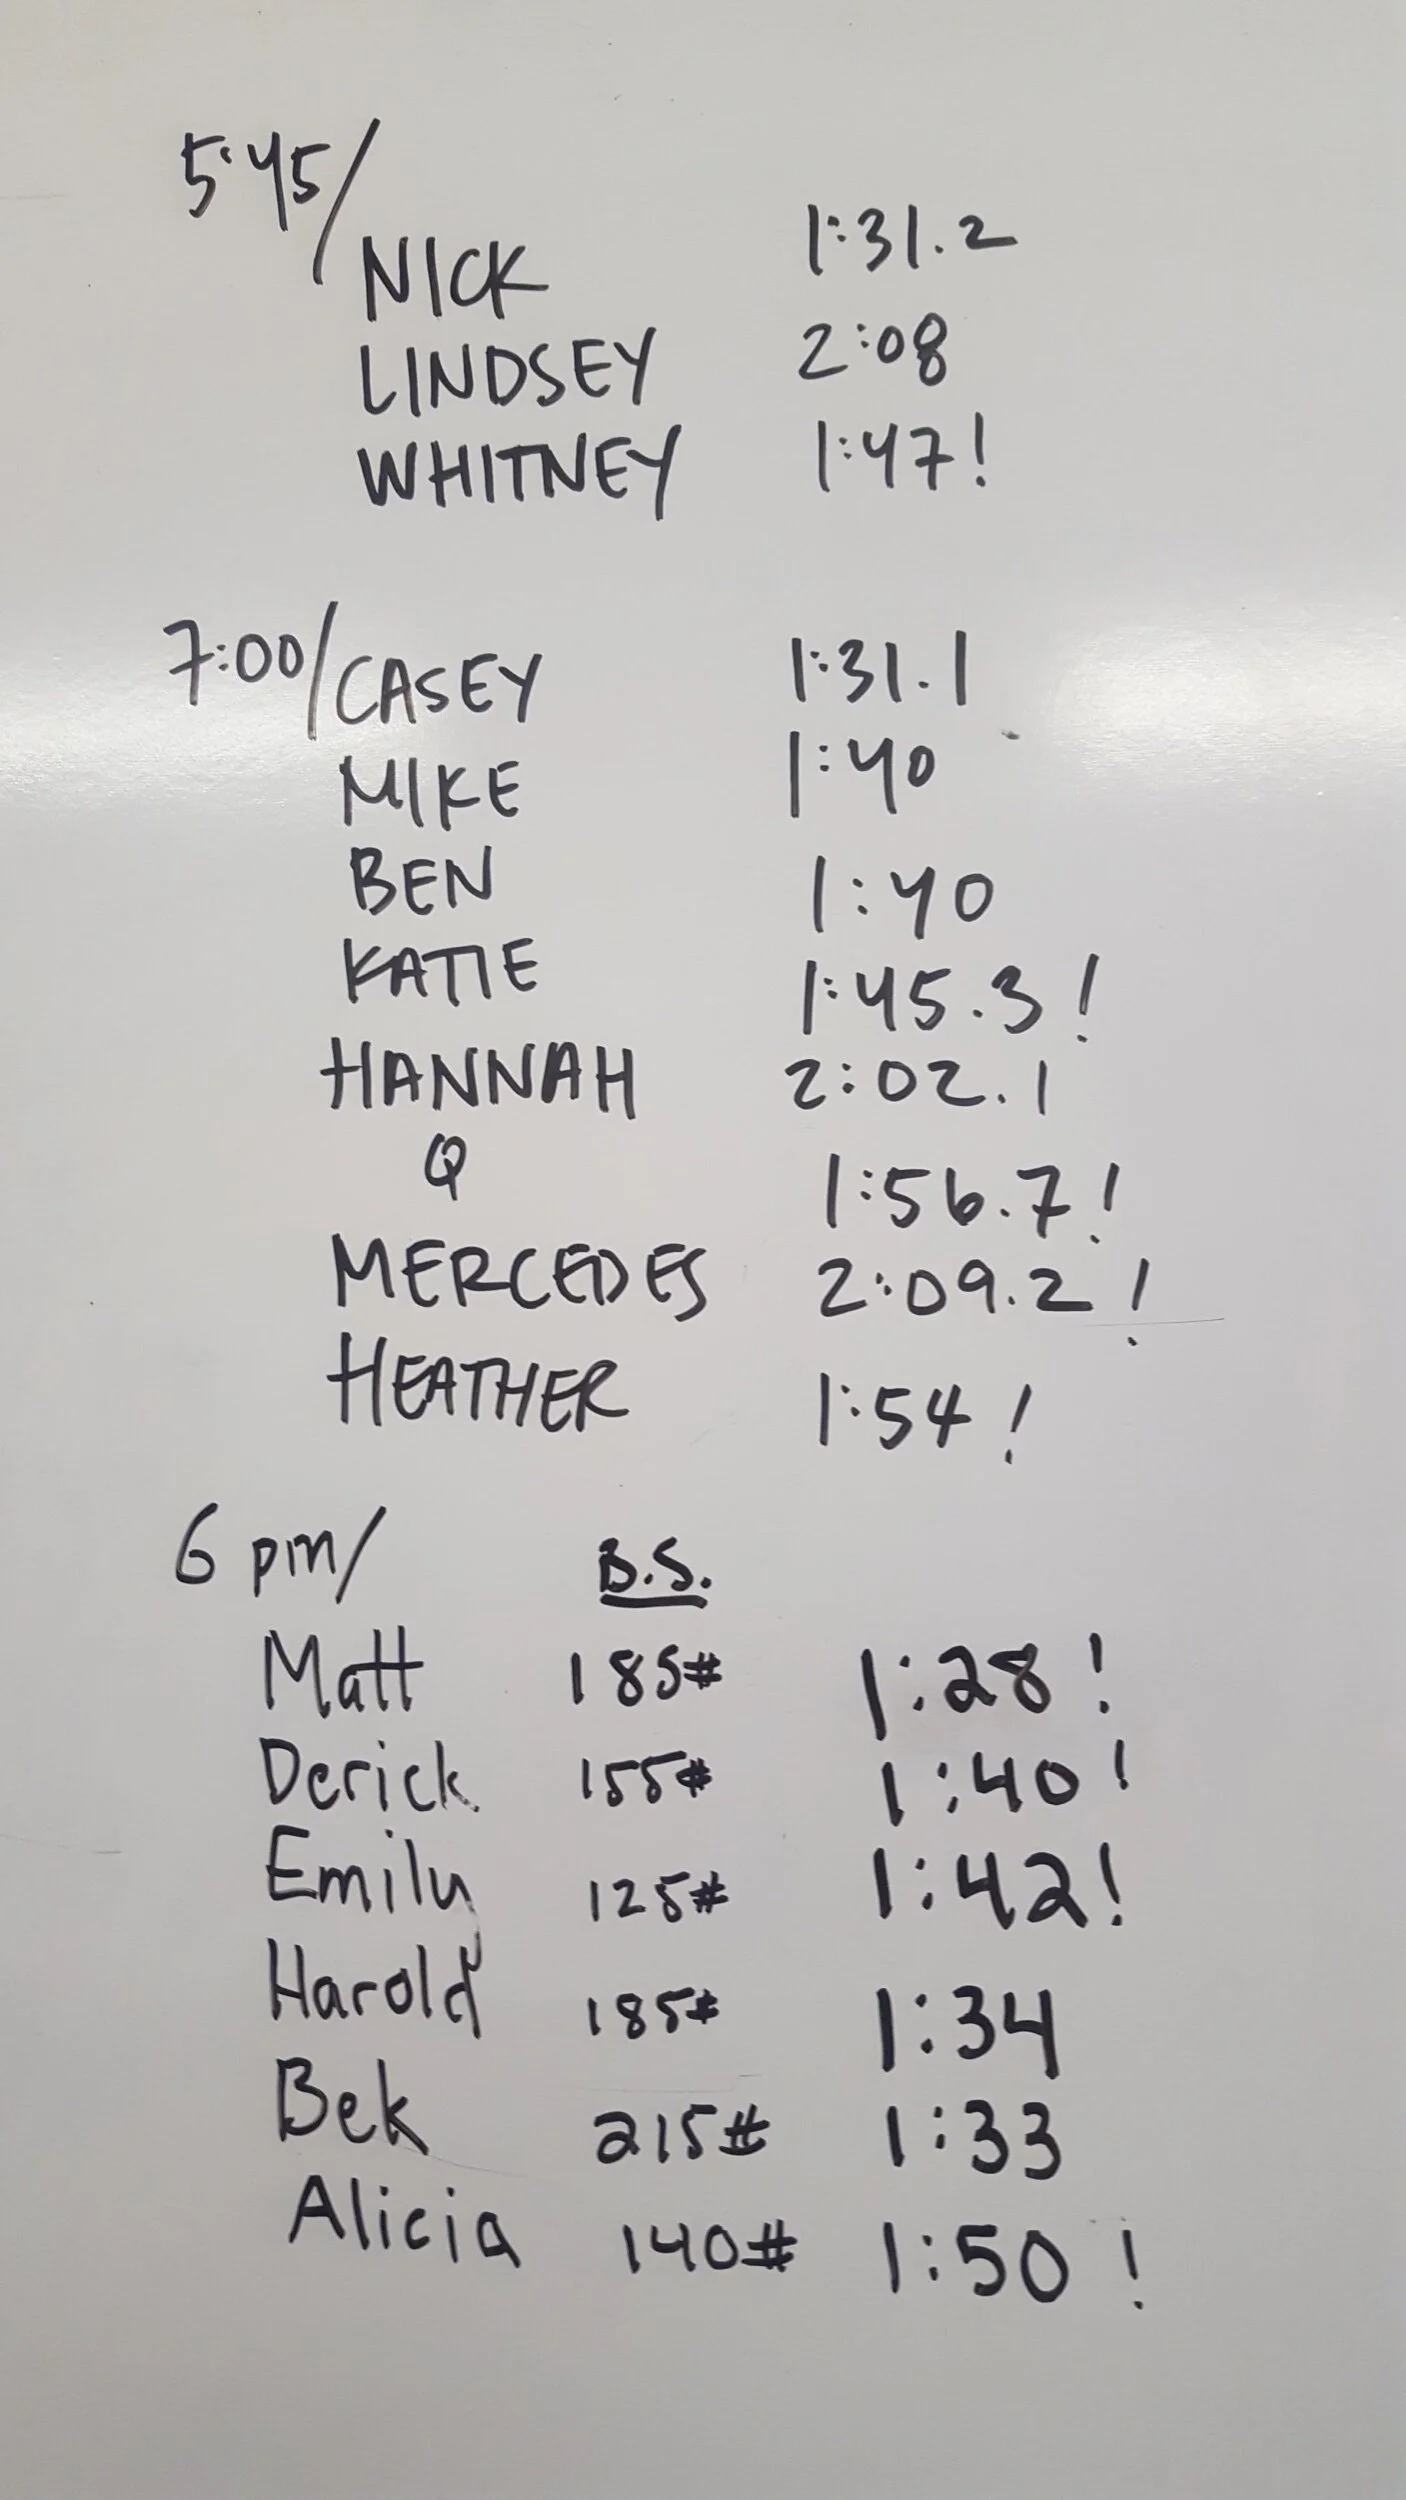 5:45/
NICK 1:31.2
LINDSEY 2:08
WHITNEY 1:47!
7:00/ CASEY 1:31.1
MIKE 1:40
BEN 1:40
KATIE 1:45.3!
HANNAH 2:02.1
Q 1:56.7!
MERCEDES 2:09.2!
HEATHER 1:54!
6 pm/ B.S.
Matt 185# 1:28!
Derick 155# 1:40!
Emily 125# 1:42!
Harold 185# 1:34
Bek 215# 1:33
Alicia 140# 1:50!